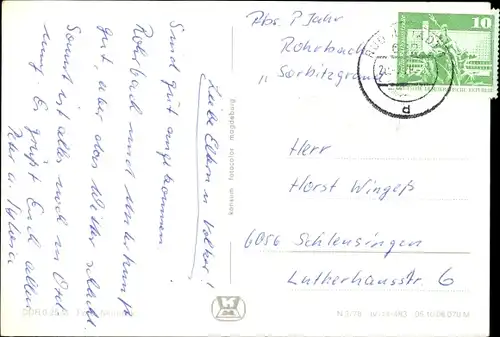 Liebe Eltern u Volker!
Sind gut angekommen.
Rohrbach und Unterkunft
gut, aber das Wetter schlecht.
Sonst ist alles noch in Ord
nung. Es grüßt Euch allen
Peter u.
Abs. P Jahr
Rohrbach
"Sorbitzgrund"
Herr
Horst Wingeß
6056 Schleusingen
Lutherhausstr. 6
10
DEUTSCHE DEMOKRATISCHE REPUBLIK
d
konsum fotocolor magdeburg